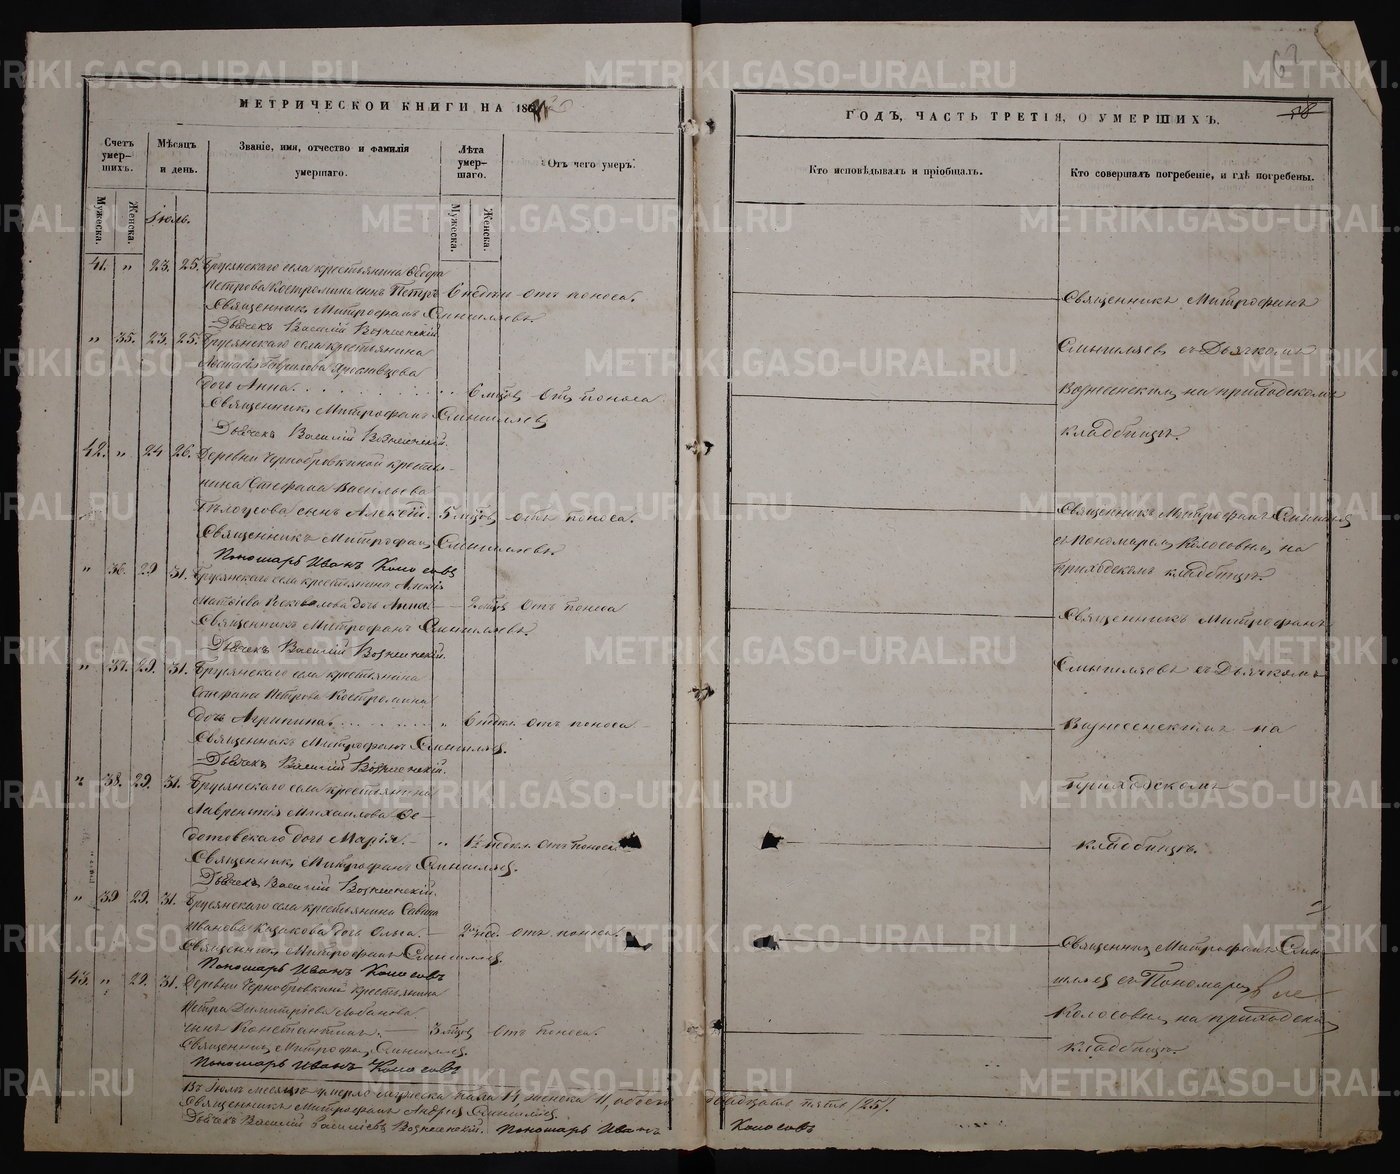 МЕТРИЧЕСКОЙ КНИГИ НА 186
ГОДЪ, ЧАСТЬ ТРЕТІЯ, О УМЕРШИХЪ.
Счетъ умер-шихъ.
Мужеска.
Женска.
Мѣсяцъ и день.
Званіе, имя, отчество и фамилія умершаго.
Лѣта умер-шаго.
Мужеска.
Женска.
Отъ чего умеръ.
Кто исповѣдывалъ и пріобщалъ.
Кто совершалъ погребеніе, и гдѣ погребены.
Іюль.
41. " 23. 25. Брусянскаго села крестьянина Ѳедора
Петрова Костромина сынъ Петръ 6 недѣли отъ поноса.
Священникъ Митрофанъ Смышляевъ.
Дьячекъ Василій Вознесенскій.
" 35. 23. 25. Брусянскаго села крестьянина
Гаврилова
дочь Анна. " 6 мцовъ отъ поноса.
Священникъ Митрофанъ Смышляевъ
Дьячекъ Василій Вознесенскій.
42. " 24 26. Деревни Чернобровкиной крестья-
нина Стефана Васильева
Бѣлоусова сынъ Алексѣй. 5 мцовъ отъ поноса.
Священникъ Митрофанъ Смышляевъ.
Пономарь Иванъ Колосовъ
" 36. 29 31. Брусянскаго села крестьянина
дочь Анна. 2 отъ поноса
Священникъ Митрофанъ Смышляевъ.
Дьячекъ Василій Вознесенскій.
" 37. 29. 31. Брусянскаго села крестьянина
Стефана Петрова Костромина
дочь Агрипина. " 6 недѣл. отъ поноса
Священникъ Митрофанъ Смышляевъ.
Дьячекъ Василій Вознесенскій.
" 38. 29. 31. Брусянскаго села крестьянина
Лаврентія Михаилова Ѳе-
дотовскаго дочь Марія. " 1½ недѣл. отъ поноса.
Священникъ Митрофанъ Смышляевъ.
Дьячекъ Василій Вознесенскій.
" 39 29. 31. Брусянскаго села крестьянина Саввы
Иванова Казакова дочь Ольга. 2 отъ поноса.
Священникъ Митрофанъ Смышляевъ.
Пономарь Иванъ Колосовъ
43. " 29. 31. Деревни Чернобровкиной крестьянина
Петра Димитріева Лобанова
сынъ Константинъ. 3 мцов отъ поноса.
Священникъ Митрофанъ Смышляевъ.
Пономарь Иванъ Колосовъ
Въ Іюлѣ месяцѣ умерло мужеска пола 14 женска 11, обоего двадцать пять /25/.
Священникъ Митрофанъ Андреевъ Смышляевъ
Дьячекъ Василій Васильевъ Вознесенскій. Пономарь Иванъ Колосовъ
Священникъ Митрофанъ
Смышляевъ съ Дьячкомъ
Вознесенскимъ на приходскомъ
кладбищѣ.
Священникъ Митрофанъ Смышляев
съ Пономаремъ Колосовымъ на
приходскомъ кладбищѣ.
Священникъ Митрофанъ
Смышляевъ съ Дьячкомъ
Вознесенскимъ на
Приходскомъ
кладбищѣ.
Священникъ Митрофанъ Смы-
шляевъ съ Пономаремъ
Колосовымъ на приходском
кладбищѣ.
METRIKI.GASO-URAL.RU